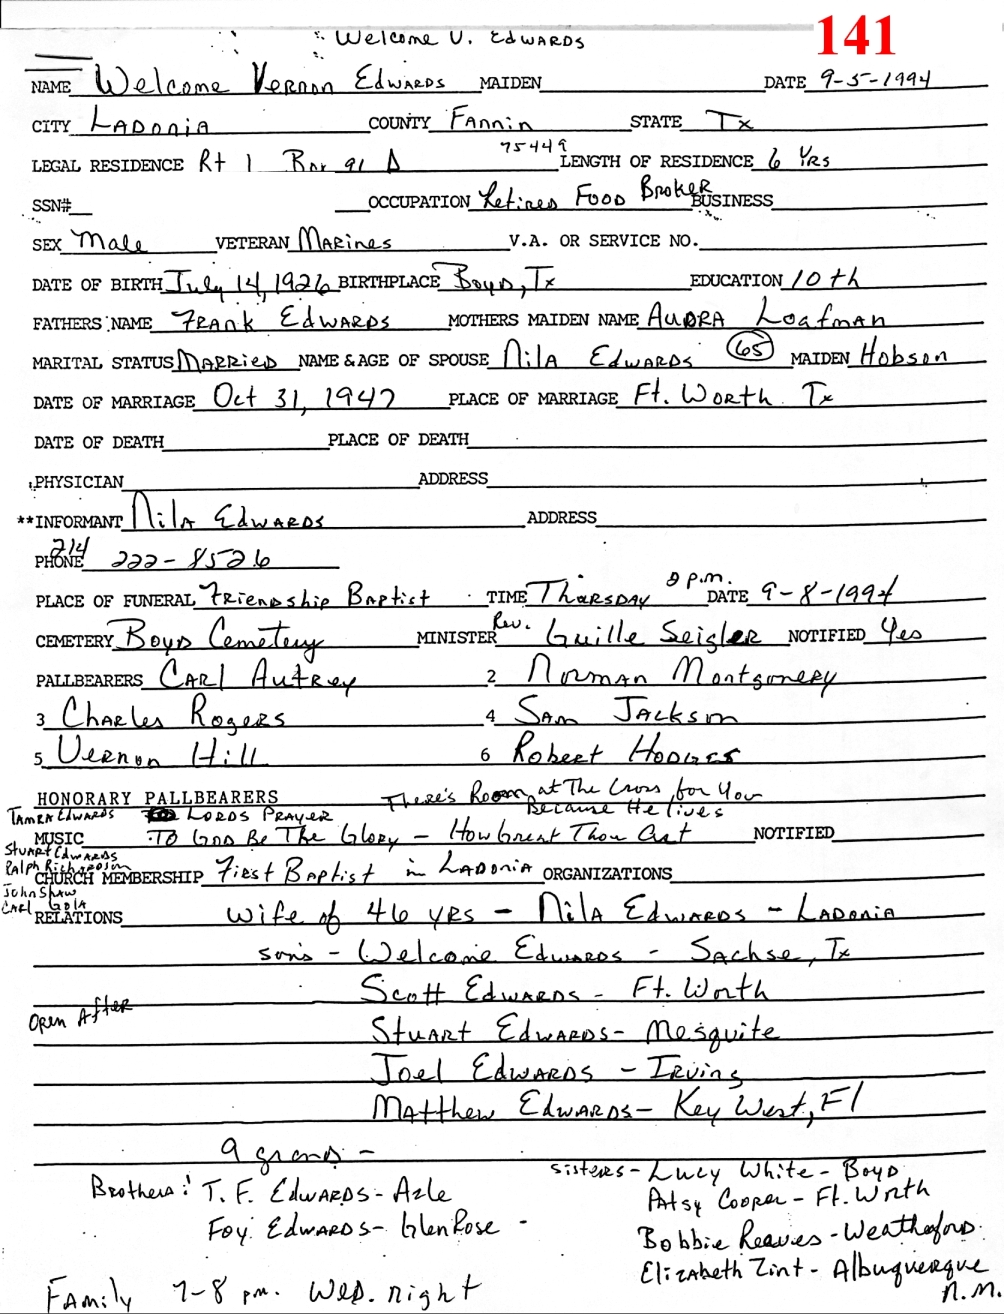 Welcome V. Edwards
141
NAME Welcome Vernon Edwards MAIDEN DATE 9-5-1994
CITY Ladonia COUNTY Fannin STATE Tx
LEGAL RESIDENCE Rt 1 Box 91 A 75449 LENGTH OF RESIDENCE 6 Yrs
SSN# OCCUPATION Retired Food Broker BUSINESS
SEX Male VETERAN Marines V.A. OR SERVICE NO.
DATE OF BIRTH July 14, 1926 BIRTHPLACE Boyd, Tx EDUCATION 10th
FATHERS NAME Frank Edwards MOTHERS MAIDEN NAME Audra Loafman
MARITAL STATUS Married NAME & AGE OF SPOUSE Nila Edwards 65 MAIDEN Hobson
DATE OF MARRIAGE Oct 31, 1947 PLACE OF MARRIAGE Ft. Worth Tx
DATE OF DEATH PLACE OF DEATH
PHYSICIAN ADDRESS
**INFORMANT Nila Edwards ADDRESS
PHONE 214 222-8526
PLACE OF FUNERAL Friendship Baptist TIME Thursday 2 p.m. DATE 9-8-1994
CEMETERY Boyd Cemetery MINISTER Rev. Guille Seigler NOTIFIED Yes
PALLBEARERS Carl Autrey 2 Norman Montgomery
3 Charles Rogers 4 Sam Jackson
5 Vernon Hill 6 Robert Hodges
HONORARY PALLBEARERS There's Room at The Cross for You
Because He lives
Tamra Edwards Lords Prayer
MUSIC To God Be The Glory - How Great Thou Art NOTIFIED
Stuart Edwards
Ralph Richardson
CHURCH MEMBERSHIP First Baptist in Ladonia ORGANIZATIONS
John Shaw
Carl Gola
RELATIONS wife of 46 yrs - Nila Edwards - Ladonia
sons - Welcome Edwards - Sachse, Tx
Scott Edwards - Ft. Worth
Open After
Stuart Edwards - Mesquite
Joel Edwards - Irving
Matthew Edwards - Key West, Fl
9 grands -
Brothers: T. F. Edwards - Azle
Foy Edwards - Glen Rose -
sisters - Lucy White - Boyd
Patsy Cooper - Ft. Worth
Bobbie Reaves - Weatherford
Elizabeth Zint - Albuquerque
N.M.
Family 7-8 pm. Wed. night